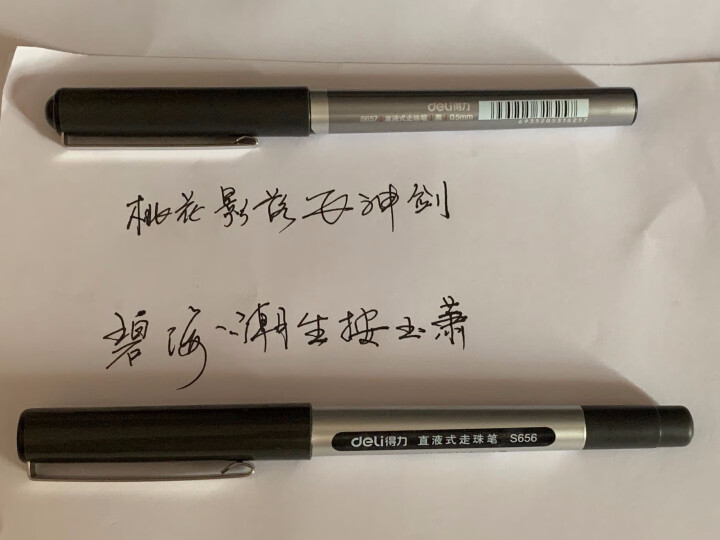 deli得力
S657 直液式走珠笔 黑 0.5mm
6935205316257
桃花影落飞神剑
碧海潮生按玉萧
deli得力 直液式走珠笔 S656